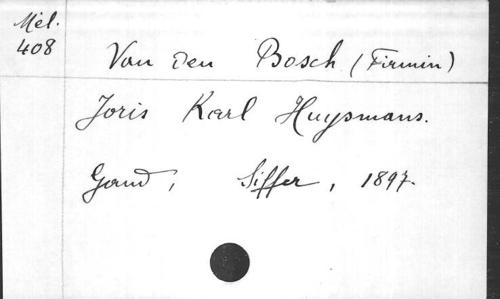 Mél.
408
Van den Bosch (Firmin)
Joris Karl Huysmans.
Gand, Siffer, 1897.